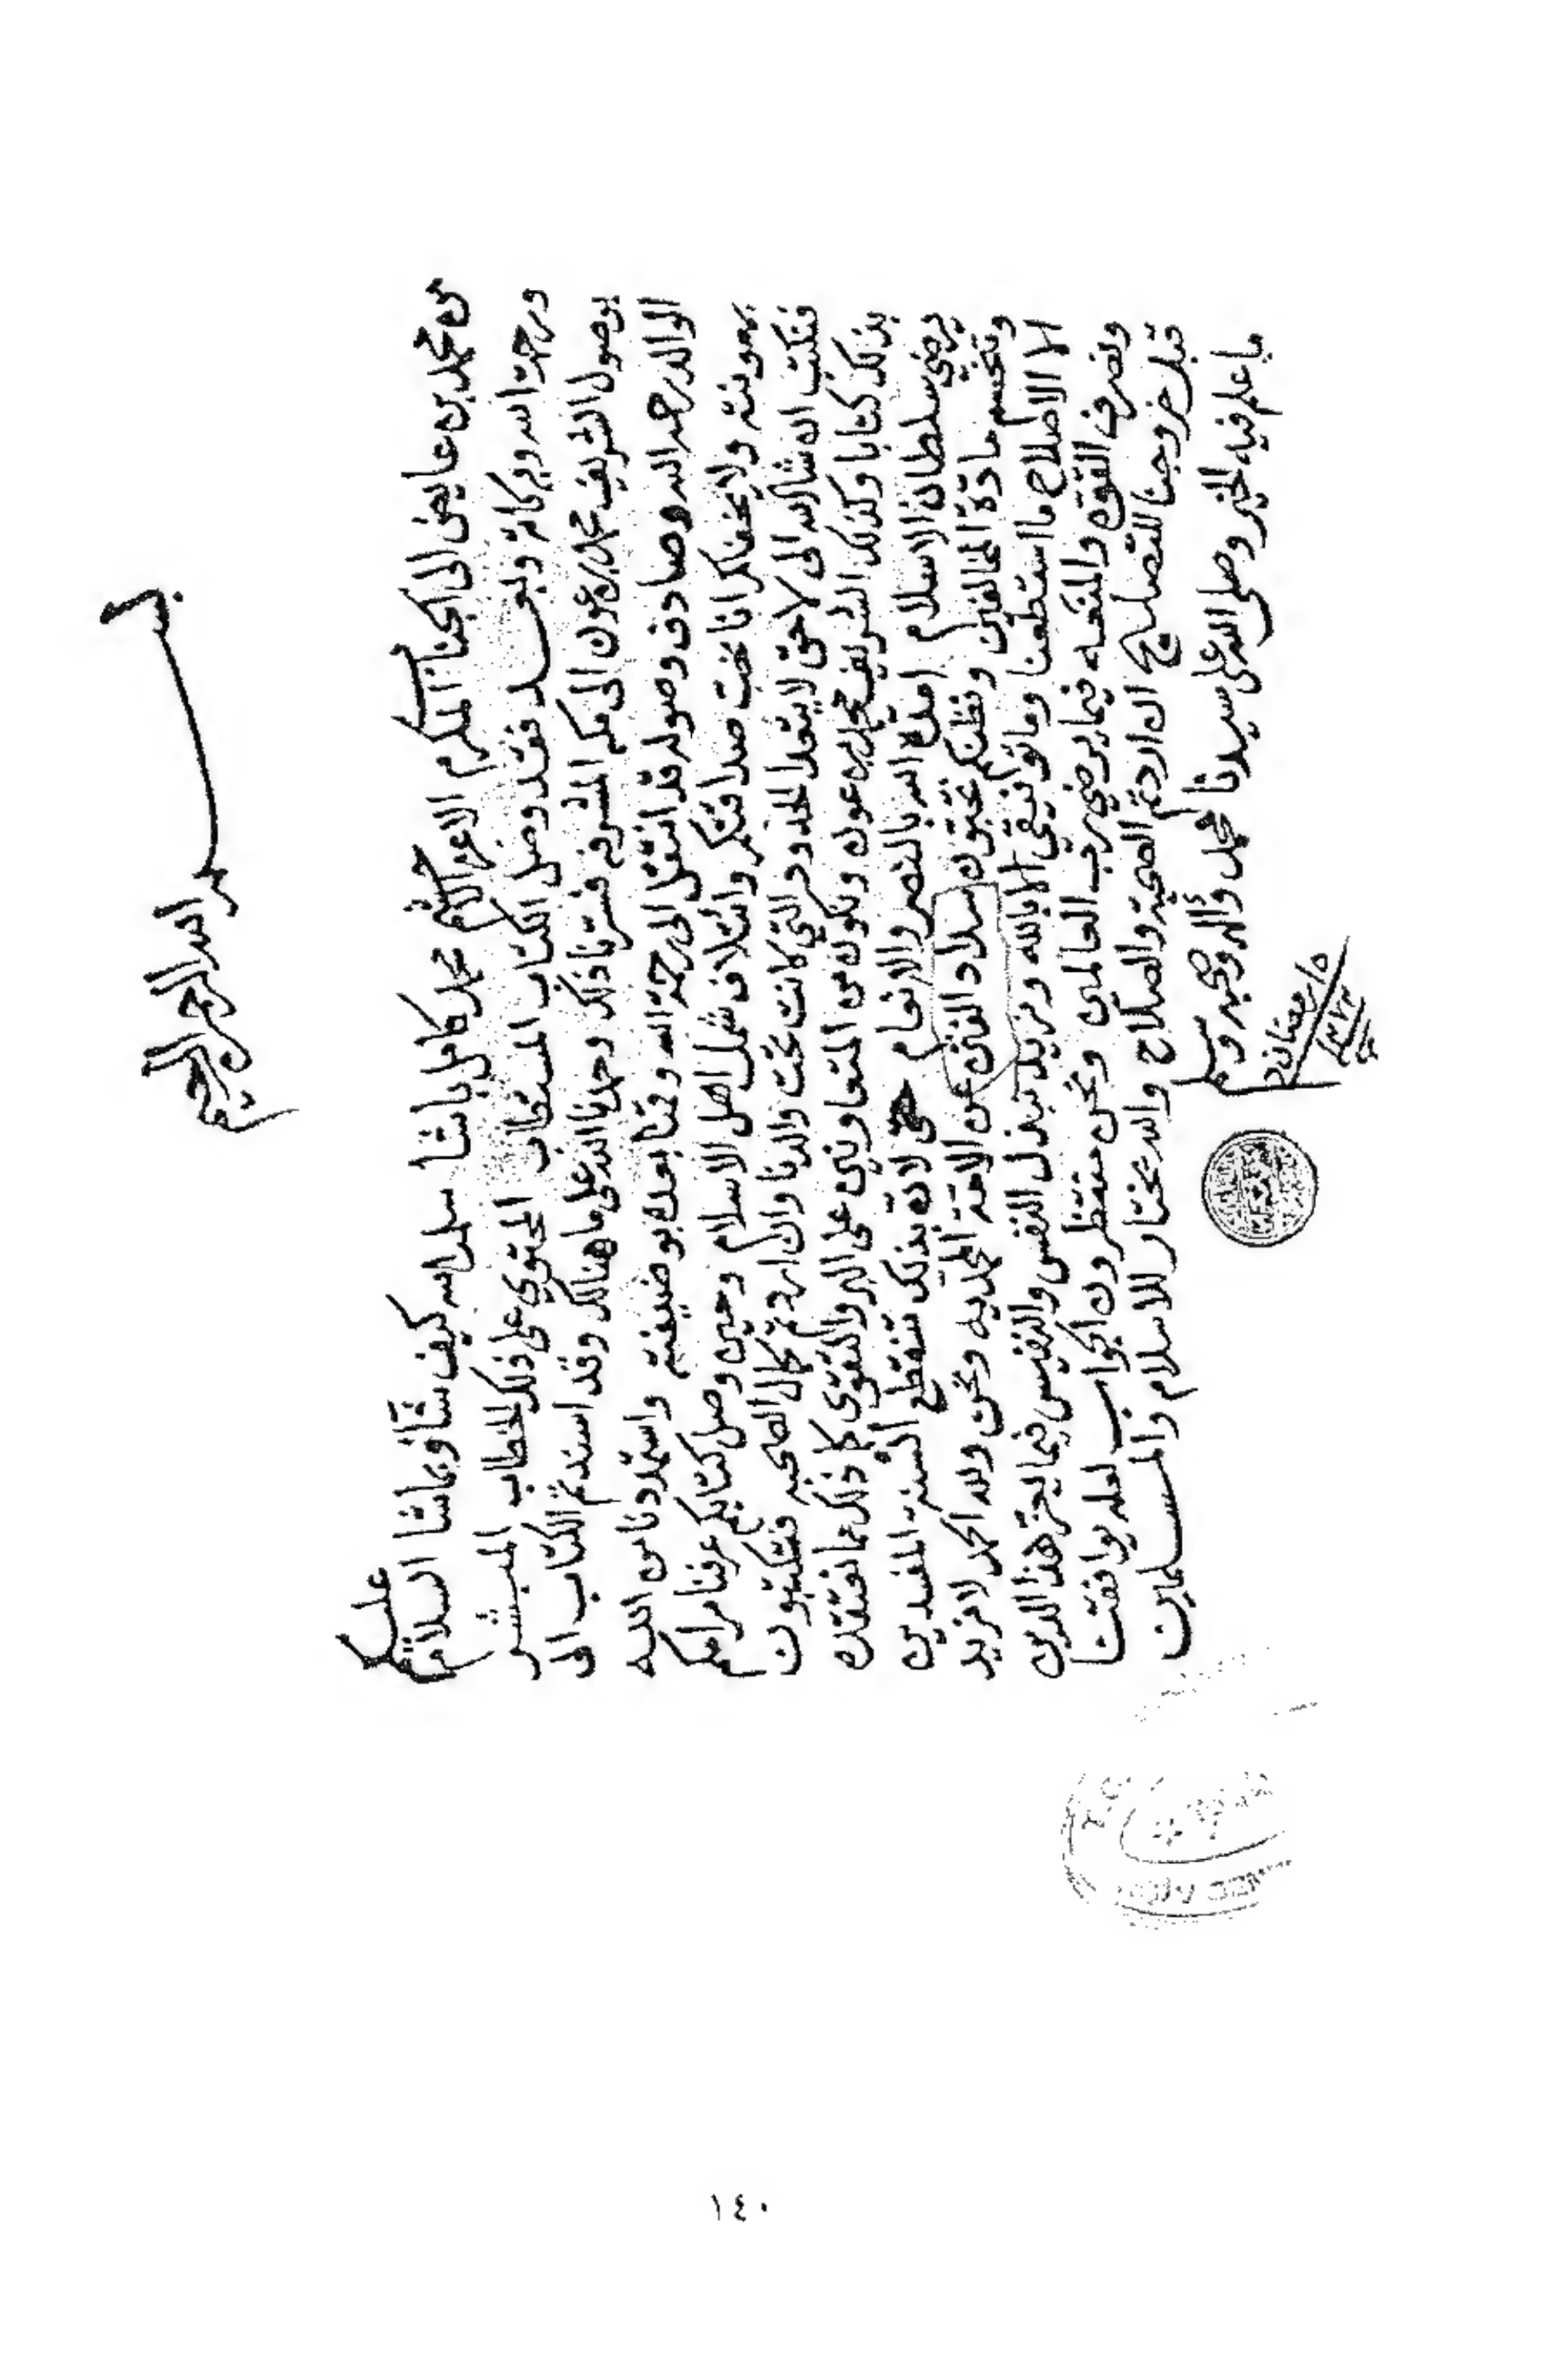 بسم الله الرحمن الرحيم
من محمد بن عايض الى الجناب المكرم الاعز الاكرم محمد كامل باشا سلمه الله كيف شآء وماشا السلام عليكم
ورحمة الله وبركاته وبعد فقد وصل الكتاب المستطاب المحتوي على ذلك الخطاب المبشر
بوصول الشريف محمد بن عون الى مكه المشرفه فسرنا ذلك وحمدنا الله على ما هنالك وقد اسندتم الكتاب الى
الوالد رحمه الله وصادف وصوله قد انتقل الى رحمة الله وقمنا بعده بوضيفته واستمدونا من الله
بمعونته ولا يخفاكم انا نحب صداقتكم وائتلاف شمل اهل الاسلام وحين وصل كتابكم عرفنا مرامكم
فنكتب ان شاء الله الى لاحق لا يتعدا الحدود التي كانت تحت والدنا وان اردتم كمال الصحبه فتكتبون
بذلك كتابا وكذلك الشريف محمد بن عون ونكون من المتعاونين على البر والتقوى كما ذلك مما نعتقده
يرضي سلطان الاسلام امده الله بالنصر والانعام حتى لانه بذلك تنقطع السنة المفسدين
وتنحسم مادة المخالفين ونظنكم تحبون سداد الفاق عن الامة المحمديه ونحن ولله الحمد لا نريد
الا الاصلاح ما استطعنا وما توفيقي الا بالله ونريد نبذل النفس والنفيس فيما يعز هذا الدين
ونصرف القوه والمنعه فيما يرضي رب العالمين ونحن منتظرون الجواب لعله يوافقنا
قبل خروجنا للتصليح ان اردتم الصحبة والصلاح والله يختار للاسلام والمسلمين
ما علم فيه الخير وصلى الله على سيدنا محمد وآله وصحبه وسلم
٥ رمضان
١٤٠